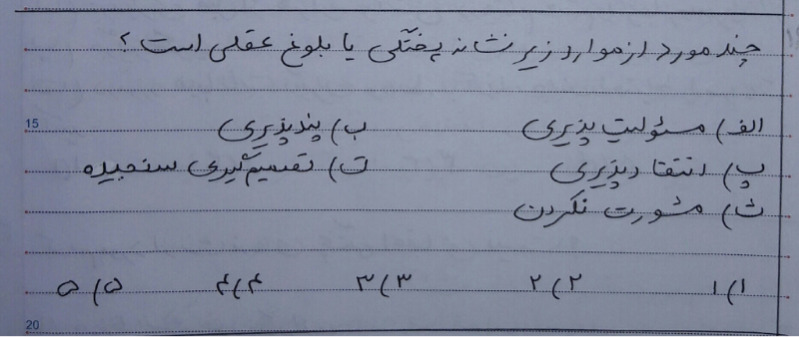 چند مورد از موارد زیر نشانه پختگی یا بلوغ عقلی است؟
15
الف) مسئولیت پذیری ب) پندپذیری
پ) انتقادپذیری ت) تصمیم‌گیری سنجیده
ث) مشورت نکردن
۱) ۱ ۲) ۲ ۳) ۳ ۴) ۴ ۵) ۵
20